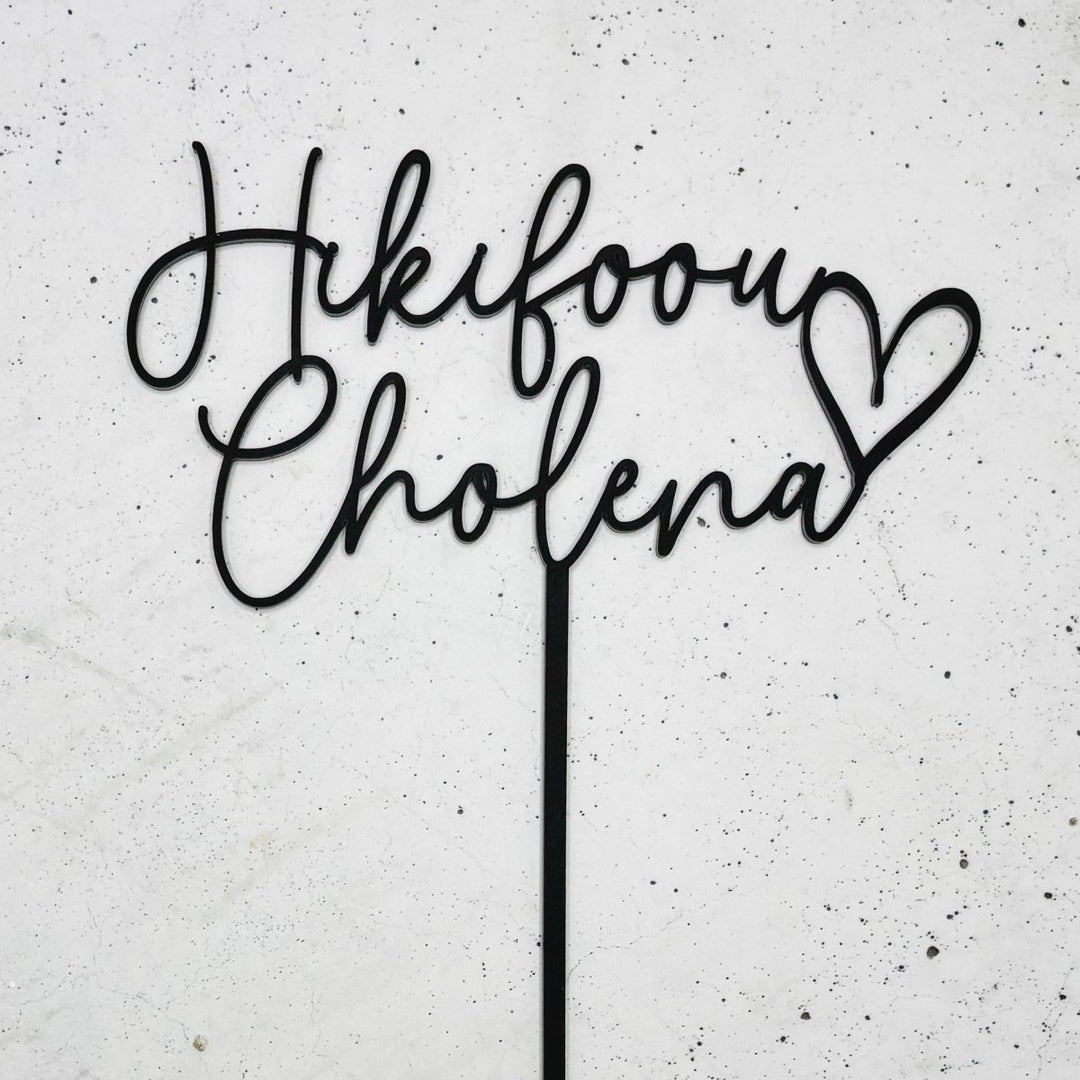 Hikifoou
Cholena